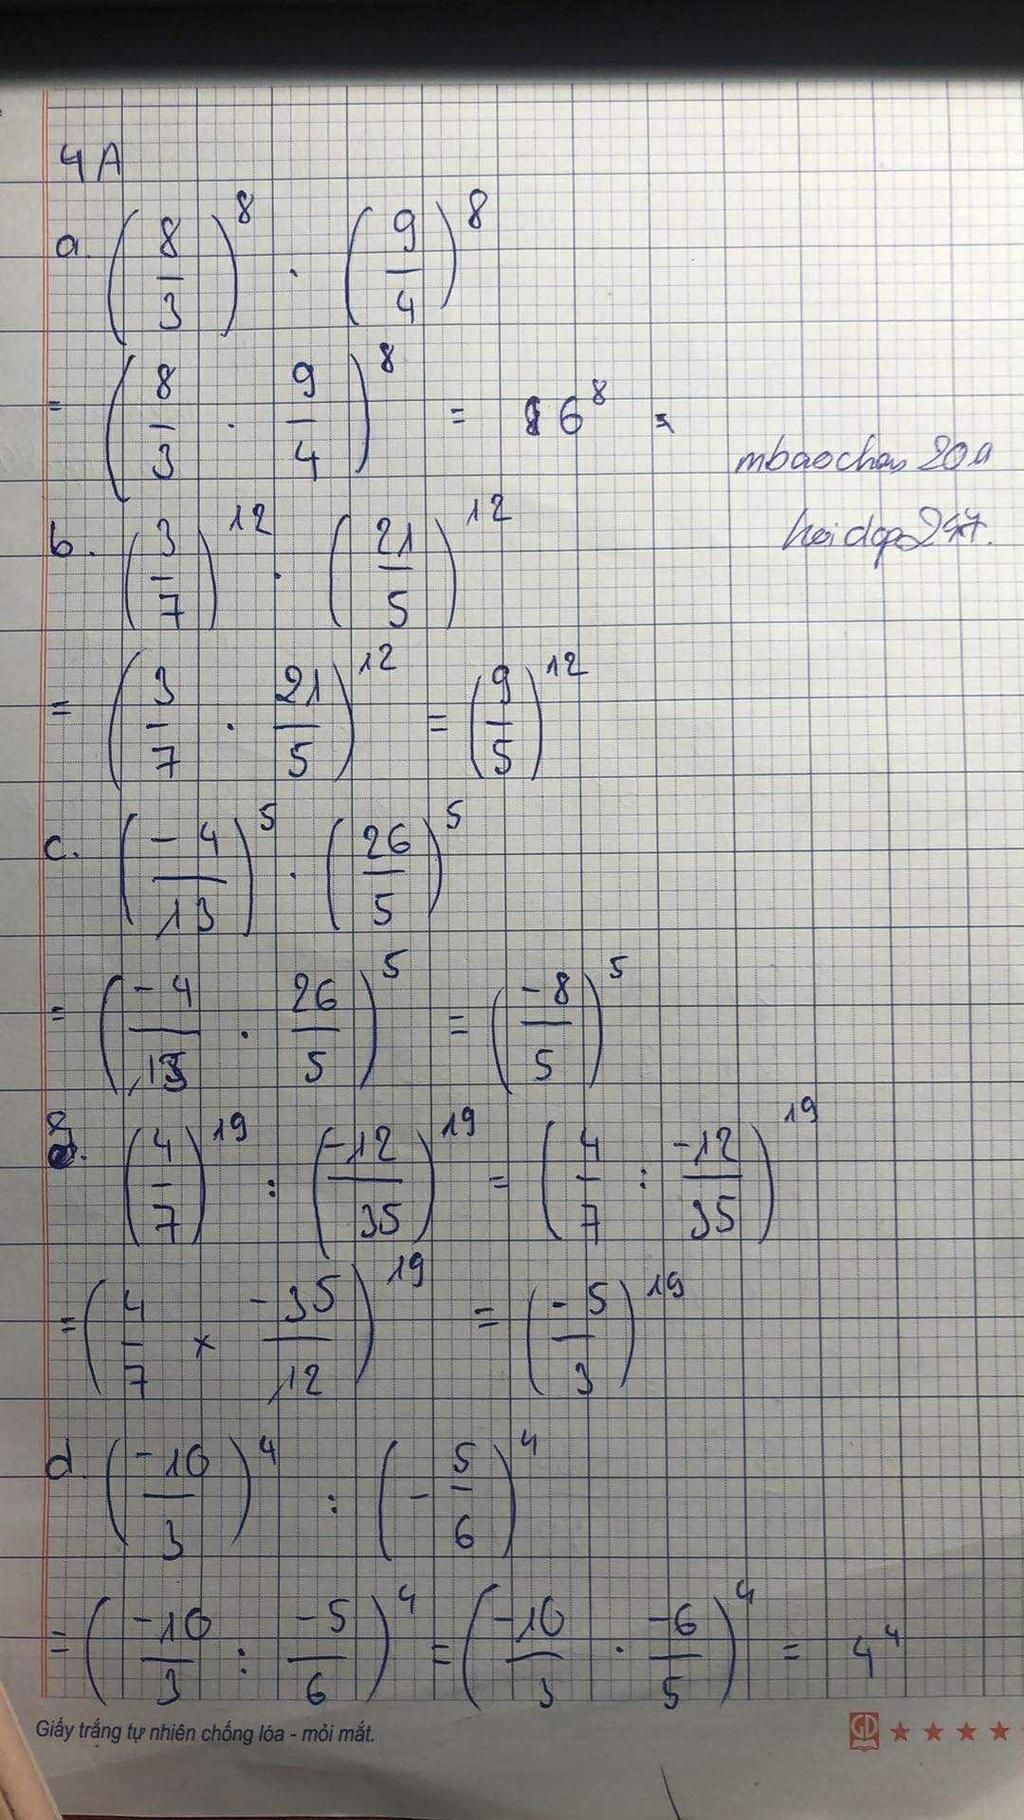 4A
a. (8/3)^8 . (9/4)^8
= (8/3 . 9/4)^8 = 6^8
mbaochau 20
b. (3/7)^12 . (21/5)^12
hoidap247.
= (3/7 . 21/5)^12 = (9/5)^12
c. (-4/13)^5 . (26/5)^5
= (-4/13 . 26/5)^5 = (-8/5)^5
(4/7)^19 : (-12/35)^19 = (4/7 : -12/35)^19
= (4/7 × -35/12)^19 = (-5/3)^19
d. (-10/3)^4 : (-5/6)^4
= (-10/3 : -5/6)^4 = (-10/3 . -6/5)^4 = 4^4
Giấy trắng tự nhiên chống lóa - mỏi mắt.
GD